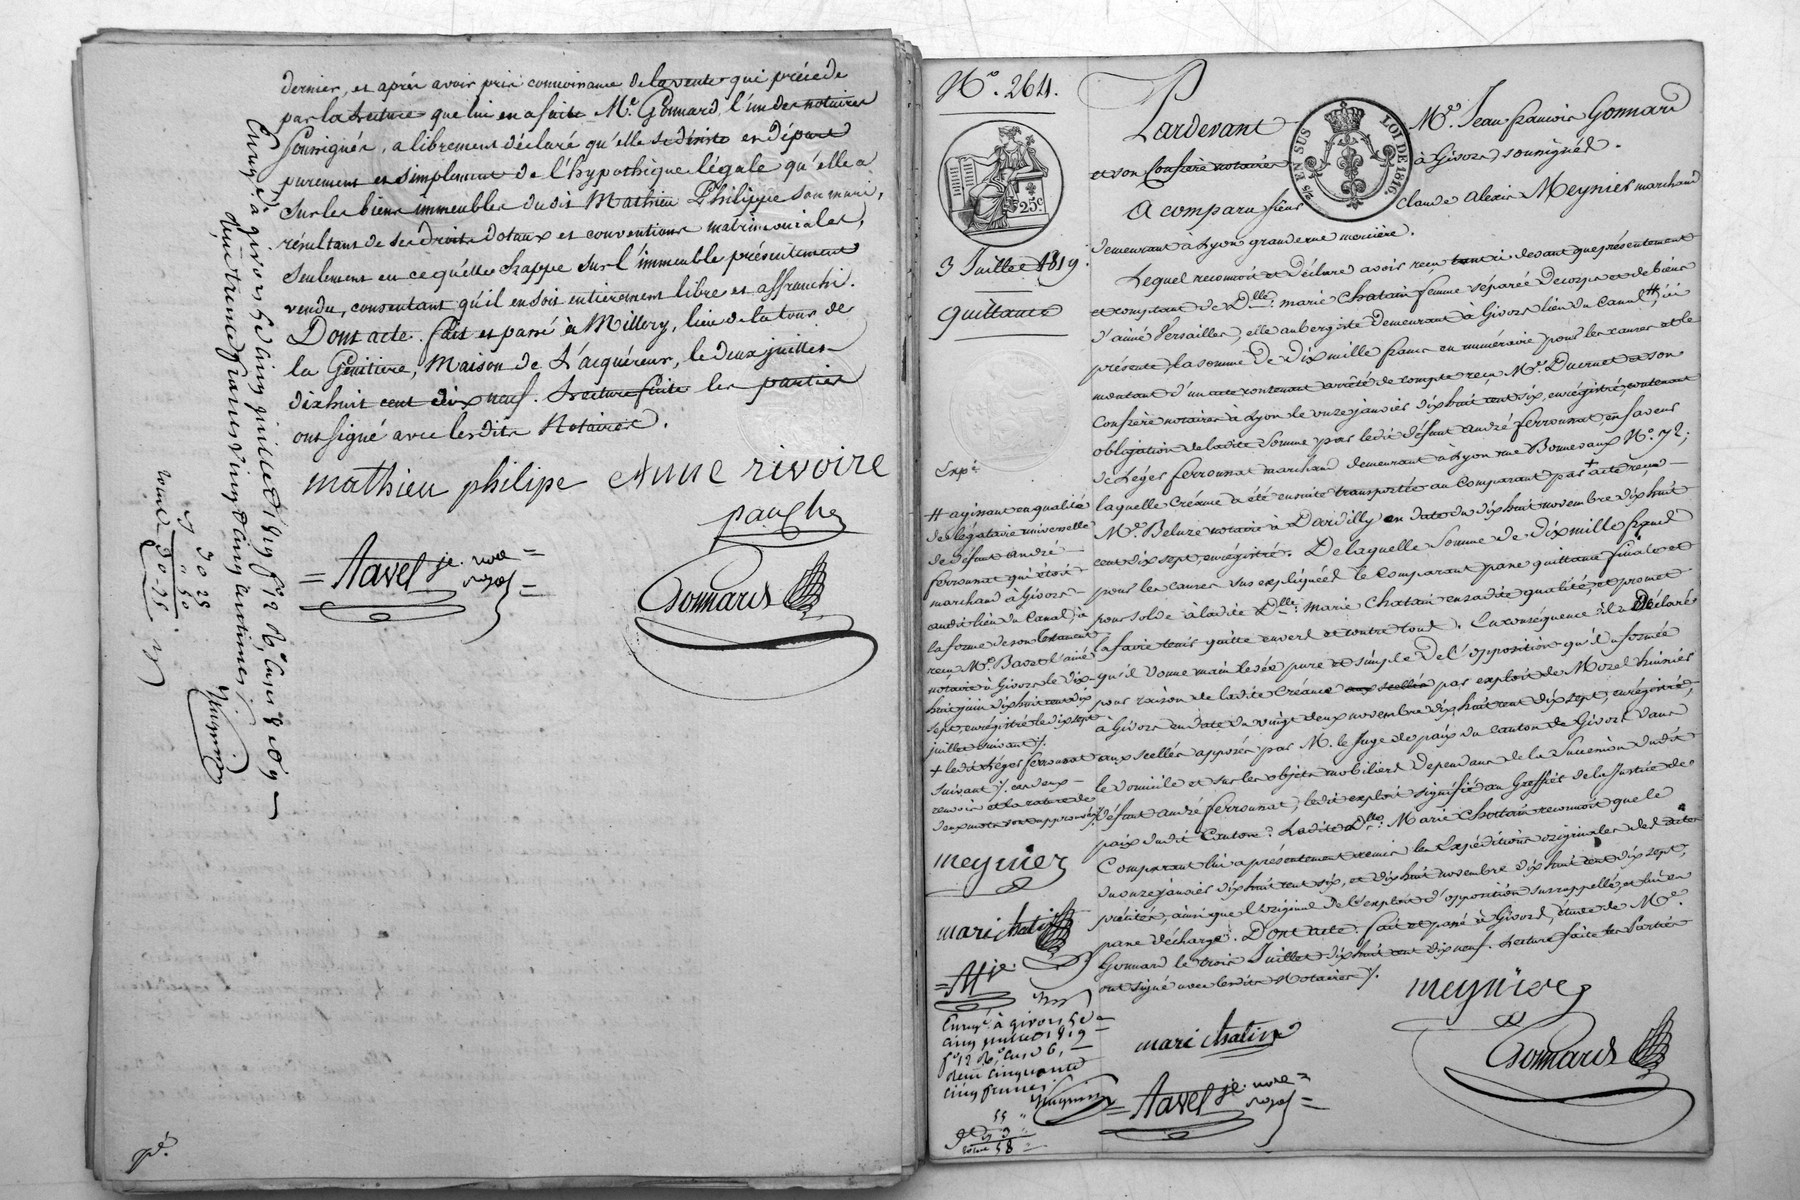 dernier, et après avoir pris connoissance de la vente qui précède
par la lecture que lui en a faite Me. Gonnard, l'un des notaires
soussignés, a librement déclaré qu'elle se désiste et départ
purement et simplement de l'hypothèque légale qu'elle a
sur les biens immeubles dudit Mathieu Philippe son mari,
résultant de ses droits dotaux et conventions matrimoniales,
seulement en ce qu'elle frappe sur l'immeuble présentement
vendu, consentant qu'il en soit entièrement libre et affranchi.
Dont acte. fait et passé à Millery, lieu de la tour de
la Maison de l'acquéreur, le deux juillet
dix huit cent dix neuf. Lecture faite les parties
ont signé avec lesdits Notaires.
mathieu philipe Anne rivoire
=Havel je. nore=
royal=
Gonnard
Enreg. à givors le cinq juillet 1819 fo 12
reçu trente francs vingt cinq centimes
30 25
No. 264.
25c
3 Juillet 1819.
Quittance
EN SUS
LOI DE 1816
Pardevant Me. Jean françois Gonnard
et son Confrère notaires à Givors, soussignés.
A comparu sieur Claude Alexis Meynier marchand
demeurant à Lyon grande rue mercière.
Lequel reconnoit et déclare avoir reçu tant ci-devant que présentement
et comptant de Dlle. marie Chatain femme séparée de corps et de biens
d'aimé Versailles, elle aubergiste demeurant à Givors lieu du Canal, # ici
présente, la somme de dix mille francs en numéraire pour les causes et le
montant d'un acte contenant arrêté de compte reçu Me. Ducruet et son
Confrère notaires à Lyon le onze janvier dix huit cent six, enrégistré, contenant
obligation de ladite somme par ledit défunt andré ferrounat, en faveur
de Léger ferrounat marchand demeurant à Lyon rue Bonneaux No. 72;
laquelle Créance a été ensuite transportée au Comparant par + acte reçu
Me. Beluze notaire à Dardilly en date du dix huit novembre dix huit
cent dix sept, enrégistré. De laquelle somme de dix mille francs
pour les causes sus expliquées le Comparant passe quittance finale et
pour solde à ladite Dlle. Marie Chatain en sadite qualité, et promet
la faire tenir quitte envers et contre tous. En conséquence il a Déclaré
qu'il donne main levée pure et simple de l'opposition qu'il a formée
pour raison de ladite Créance aux scellés par exploit de Morel huissier
à Givors en date du vingt deux novembre dix huit cent dix sept, enrégistré,
aux scellés apposés par M. le Juge de paix du canton de Givors dans
le domicile et sur les objets mobiliers dépendans de la succession dudit
défunt andré ferrounat, ledit exploit signifié au Greffier de la Justice de
paix dudit Canton. Ladite Dlle. Marie Chattain reconnoit que le
Comparant lui a présentement remis les Expéditions originales des actes
du onze janvier dix huit cent six, et dix huit novembre dix huit cent dix sept,
précités, ainsi que l'original de l'exploit d'opposition sus rappellé, et lui en
passe décharge. Dont acte. fait et passé à Givors, étude de Me.
Gonnard le trois Juillet dix huit cent dix neuf. Lecture faite les Parties
ont signé avec lesdits Notaires /.
meynier
mari chatin
Gonnard
=Havel je. nore=
royal=
Expé
# agissant en qualité
de légataire universelle
de défunt andré
ferrounat qui étoit
marchand à Givors
audit lieu du Canal, à
la forme de son testament
reçu Me. l'ainé
notaire à Givors le dix
huit juin dix huit cent dix
sept, enrégistré le dix sept
juillet suivant /.
+ ledit Léger ferrounat
suivant /. ces deux
renvois et la rature de
deux mots sont approuvés /.
meynier
mari chatin
Enreg. à givors le
cinq juillet 1819
fo 12
reçu cinquante
cinq francs
55
58